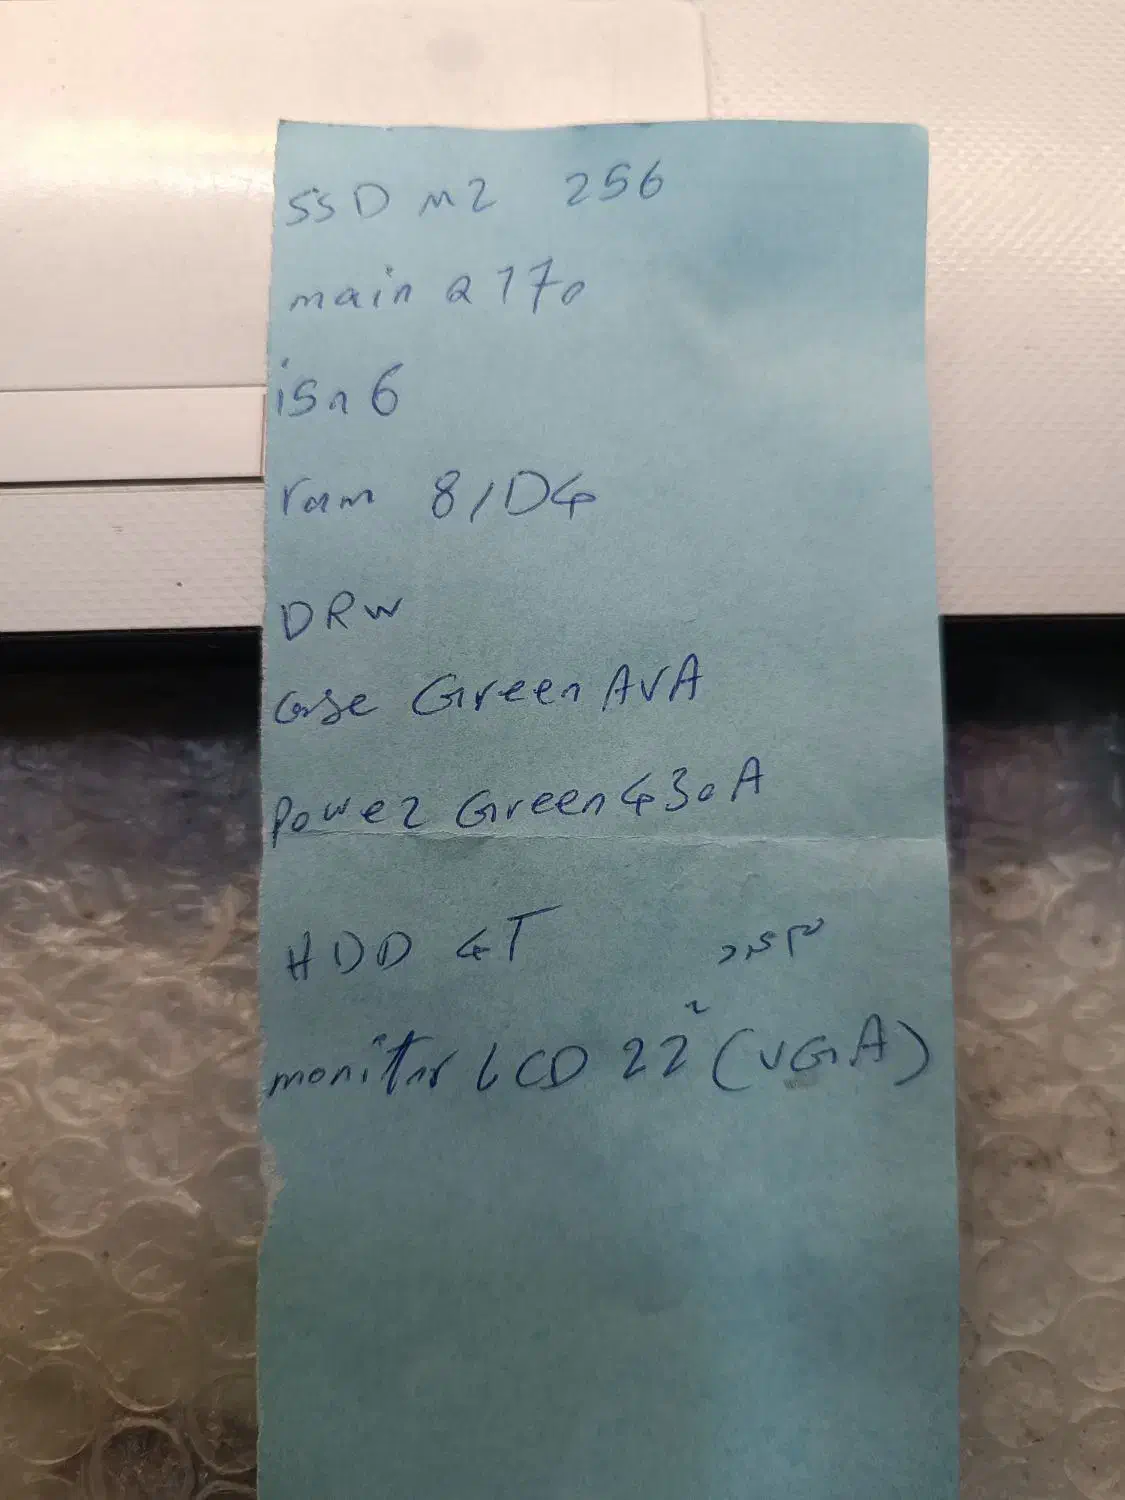 SSD M2 256
main Q170
i5n6
ram 8/D4
DRW
Case Green AVA
Power Green 430A
HDD 4T
monitor LCD 22" (VGA)